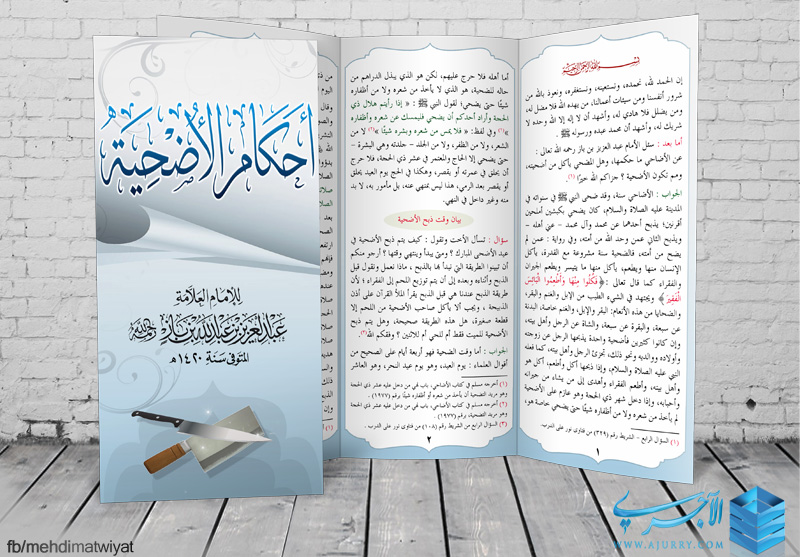 أحكام الأضحية
للإمام العلامة
عبد العزيز بن عبد الله بن باز رحمه الله
المتوفى سنة ١٤٢٠هـ
بسم الله الرحمن الرحيم
إن الحمد لله، نحمده، ونستعينه، ونستغفره، ونعوذ بالله من
شرور أنفسنا ومن سيئات أعمالنا، من يهده الله فلا مضل له،
ومن يضلل فلا هادي له، وأشهد أن لا إله إلا الله وحده لا
شريك له، وأشهد أن محمد عبده ورسوله ﷺ .
أما بعد : سئل الإمام عبد العزيز بن باز رحمه الله تعالى :
عن الأضاحي ما حكمها، وهل المضحي يأكل من أضحيته،
ومم تكون الأضحية ؟ جزاكم الله خيرًا (١).
الجواب : الأضاحي سنة، وقد ضحى النبي ﷺ في سنواته في
المدينة عليه الصلاة والسلام، كان يضحي بكبشين أملحين
أقرنين، يذبح أحدهما عن محمد وآل محمد - عني أهله -
ويذبح الثاني عمن وحد الله من أمته، وفي رواية : عمن لم
يضح من أمته، فالضحية سنة مشروعة مع القدرة، يأكل
الإنسان منها ويطعم، يأكل منها ما يتيسر ويطعم الجيران
والفقراء كما قال تعالى : ﴿فَكُلُوا مِنْهَا وَأَطْعِمُوا الْبَائِسَ
الْفَقِيرَ﴾ ويجتهد في الشيء الطيب من الإبل والغنم والبقر،
والضحايا من هذه الأنعام: البقر والإبل، والغنم خاصة، البدنة
عن سبعة، والبقرة عن سبعة، والشاة عن الرجل وأهل بيته،
وإن كانوا كثيرين فأضحية واحدة يذبحها الرجل عن زوجته
وأولاده ووالديه ونحو ذلك، تجزئ الرجل وأهل بيته، كما فعله
النبي عليه الصلاة والسلام، وإذا ذبحها أكل وأطعم، أكل هو
وأهل بيته، وأطعم الفقراء وأهدى إلى من يشاء من جيرانه
وأحبابه، وإذا دخل شهر ذي الحجة وهو عازم على الأضحية
لم يأخذ من شعره ولا من أظفاره شيئًا حتى يضحي خاصة هو،
(١) السؤال الرابع - الشريط رقم (٣٤٩) من فتاوى نور على الدرب.
١
أما أهله فلا حرج عليهم، لكن هو الذي يبذل الدراهم من
ماله للتضحية، هو الذي لا يأخذ من شعره ولا من أظفاره
شيئًا حتى يضحي؛ لقول النبي ﷺ : « إذا رأيتم هلال ذي
الحجة وأراد أحدكم أن يضحي فليمسك عن شعره وأظفاره
»(١) وفي لفظ: « فلا يمس من شعره وبشره شيئًا »(٢) لا من
الشعر، ولا من الظفر، ولا من الجلد - جلدته وهي البشرة -
حتى يضحي إلا الحاج والمعتمر في عشر ذي الحجة، فلا حرج
أن يحلق في عمرته أو يقصر، وهكذا في الحج يوم العيد يحلق
أو يقصر بعد الرمي، هذا ليس بمنهي عنه، بل مأمور به، لا بد
منه وغير داخل في النهي.
بيان وقت ذبح الأضحية
سؤال : تسأل الأخت وتقول : كيف يتم ذبح الأضحية في
عيد الأضحى المبارك ؟ ومتى يبدأ وينتهي وقتها ؟ أرجو منكم
أن تبينوا الطريقة التي تبدأ بها بالذبح، ماذا نعمل ونقول قبل
الذبح وأثناءه وبعده إلى أن يتم توزيع اللحم إلى الفقراء ؛ لأن
طريقة الذبح عندنا هي قبل الذبح يقرأ الملأ القرآن على أذن
الذبيحة ، ويجب ألا يأكل صاحب الأضحية من اللحم إلا
قطعة صغيرة، هل هذه الطريقة صحيحة، وهل يتم ذبح
الأضحية للميت فقط أم للحي أم للاثنين ؟ وفقكم الله(٣).
الجواب : أما وقت الضحية فهو أربعة أيام على الصحيح من
أقوال العلماء : يوم العيد، وهو يوم عيد النحر، وهو العاشر
(١) أخرجه مسلم في كتاب الأضاحي، باب نهي من دخل عليه عشر ذي الحجة
وهو مريد التضحية، أن يأخذ من شعره أو أظفاره شيئًا برقم (١٩٧٧).
(٢) أخرجه مسلم في كتاب الأضاحي، باب نهي من دخل عليه عشر ذي الحجة
وهو مريد التضحية، برقم (١٩٧٧)
(٣) السؤال الرابع من الشريط رقم (١٠٨) من فتاوى نور على الدرب.
٢
fb/mehdimatwiyat
الآجري
WWW.AJURRY.COM